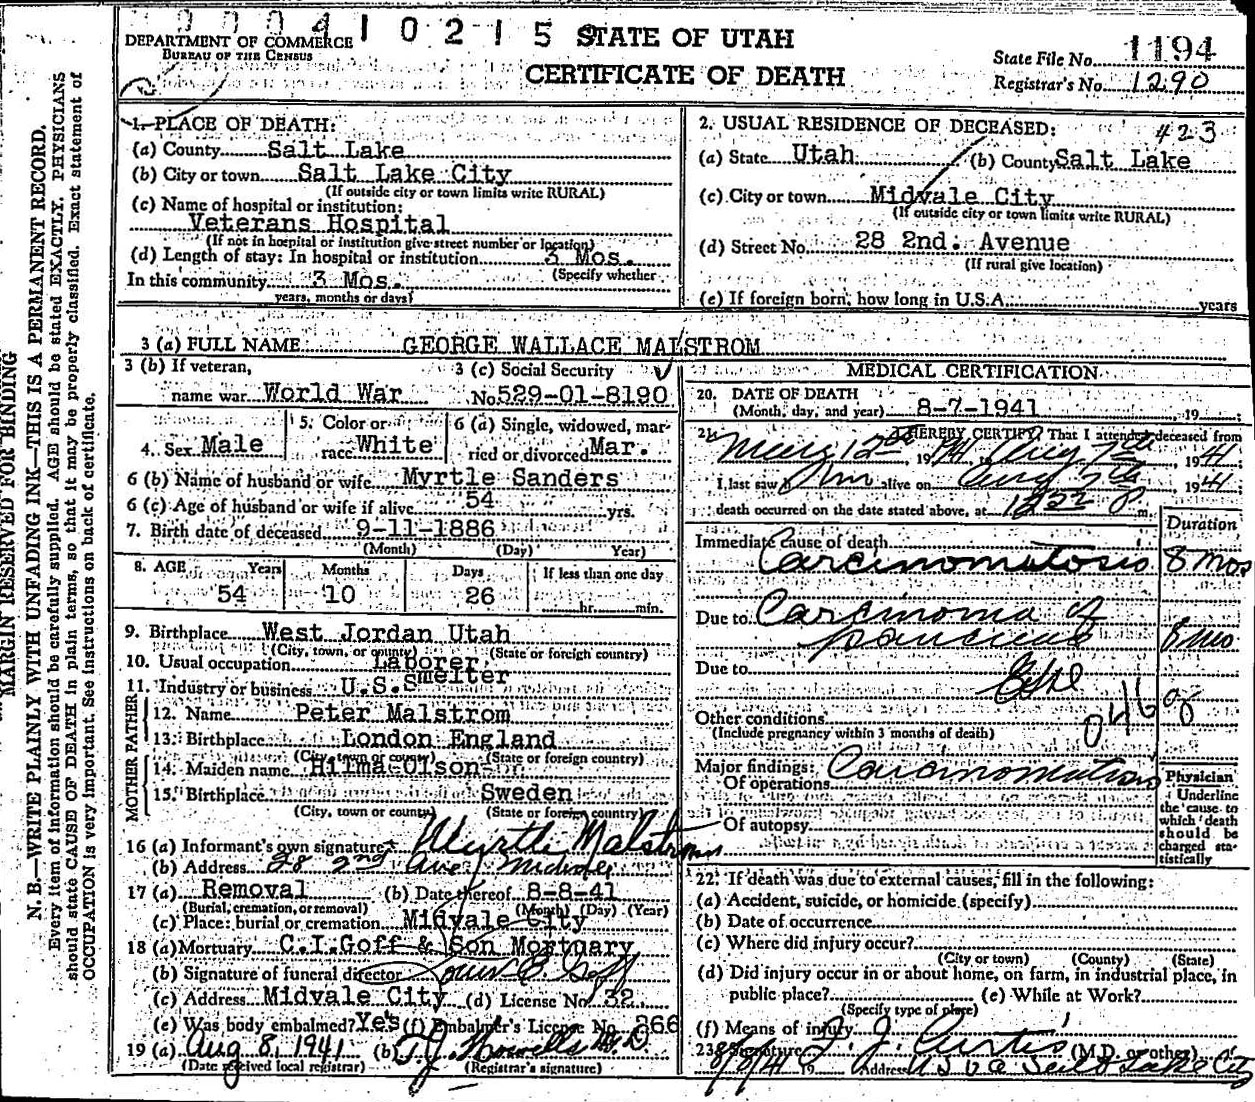 00041 0 2 1 5 STATE OF UTAH
DEPARTMENT OF COMMERCE
BUREAU OF THE CENSUS
CERTIFICATE OF DEATH
State File No. 1194
Registrar's No. 1290
MARGIN RESERVED FOR BINDING
N. B.—WRITE PLAINLY WITH UNFADING INK—THIS IS A PERMANENT RECORD.
Every item of information should be carefully supplied. AGE should be stated EXACTLY. PHYSICIANS
should state CAUSE OF DEATH in plain terms, so that it may be properly classified. Exact statement of
OCCUPATION is very important. See instructions on back of certificate.
1. PLACE OF DEATH:
(a) County Salt Lake
(b) City or town Salt Lake City
(If outside city or town limits write RURAL)
(c) Name of hospital or institution:
Veterans Hospital
(If not in hospital or institution give street number or location)
(d) Length of stay: In hospital or institution 3 Mos.
(Specify whether
In this community 3 Mos.
years, months or days)
2. USUAL RESIDENCE OF DECEASED: 423
(a) State Utah (b) County Salt Lake
(c) City or town Midvale City
(If outside city or town limits write RURAL)
(d) Street No. 28 2nd. Avenue
(If rural give location)
(e) If foreign born, how long in U.S.A. years
3 (a) FULL NAME GEORGE WALLACE MALSTROM
3 (b) If veteran,
name war World War
3 (c) Social Security
No. 529-01-8190
4. Sex Male
5. Color or
race White
6 (a) Single, widowed, mar-
ried or divorced Mar.
6 (b) Name of husband or wife Myrtle Sanders
6 (c) Age of husband or wife if alive 54 yrs.
7. Birth date of deceased 9-11-1886
(Month) (Day) Year)
8. AGE Years Months Days If less than one day
54 10 26 hr. min.
9. Birthplace West Jordan Utah
(City, town, or county) (State or foreign country)
10. Usual occupation Laborer
11. Industry or business U.S.Smelter
FATHER
12. Name Peter Malstrom
13. Birthplace London England
(City, town or county) (State or foreign country)
MOTHER
14. Maiden name Hilma Olson
15. Birthplace Sweden
(City, town or county) (State or foreign country)
16 (a) Informant's own signature Myrtle Malstrom
(b) Address 28 2nd Ave Midvale
17 (a) Removal (b) Date thereof 8-8-41
(Burial, cremation, or removal) (Month) (Day) (Year)
(c) Place: burial or cremation Midvale City
18 (a) Mortuary C.I.Goff & Son Mortuary
(b) Signature of funeral director Louis E Goff
(c) Address Midvale City (d) License No. 32
(e) Was body embalmed? Yes (f) Embalmer's License No. 366
19 (a) Aug 8, 1941 (b) T.J. Howells M.D.
(Date received local registrar) (Registrar's signature)
MEDICAL CERTIFICATION
20. DATE OF DEATH
(Month, day, and year) 8-7-1941 , 19 ;
21. I HEREBY CERTIFY, That I attended deceased from
May 12th 1941 Aug 7th, 1941
I last saw him alive on Aug 7th 1941
death occurred on the date stated above, at P m.
Duration
Immediate cause of death
Carcinomatosis 8 mos
Due to Carcinoma of
pancreas 8 mo
Due to
046 g
Other conditions
(Include pregnancy within 3 months of death)
Major findings: Carcinomatosis
Of operations
Of autopsy
Physician
Underline
the cause to
which death
should be
charged sta-
tistically
22. If death was due to external causes, fill in the following:
(a) Accident, suicide, or homicide (specify)
(b) Date of occurrence
(c) Where did injury occur?
(City or town) (County) (State)
(d) Did injury occur in or about home, on farm, in industrial place, in
public place? (e) While at Work?
(Specify type of place)
(f) Means of injury
23. Signature J. J. Curtis (M.D. or other)
8/8/41 19 Address U S V A Salt Lake City